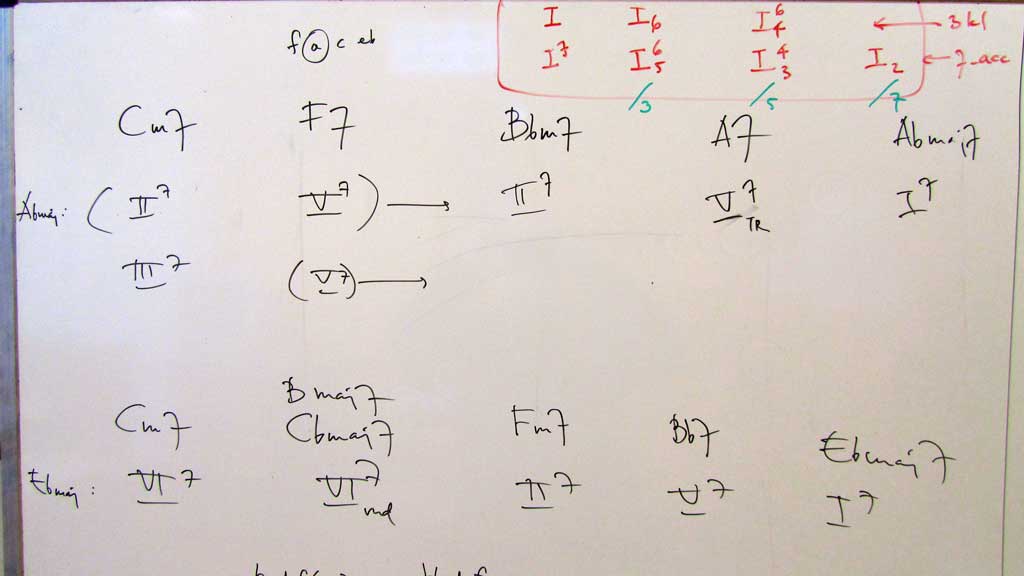 f a c eb
I I6 I6/4 ← 3kl
I7 I6/5 I4/3 I2 ← 7-acc
/3 /5 /7
Cm7 F7 Bbm7 A7 Abmaj7
Abmaj: ( II7 V7 ) → II7 V7 TR I7
III7 (V7) →
Bmaj7
Cm7 Cbmaj7 Fm7 Bb7 Ebmaj7
Ebmaj: VI7 VI7 md II7 V7 I7